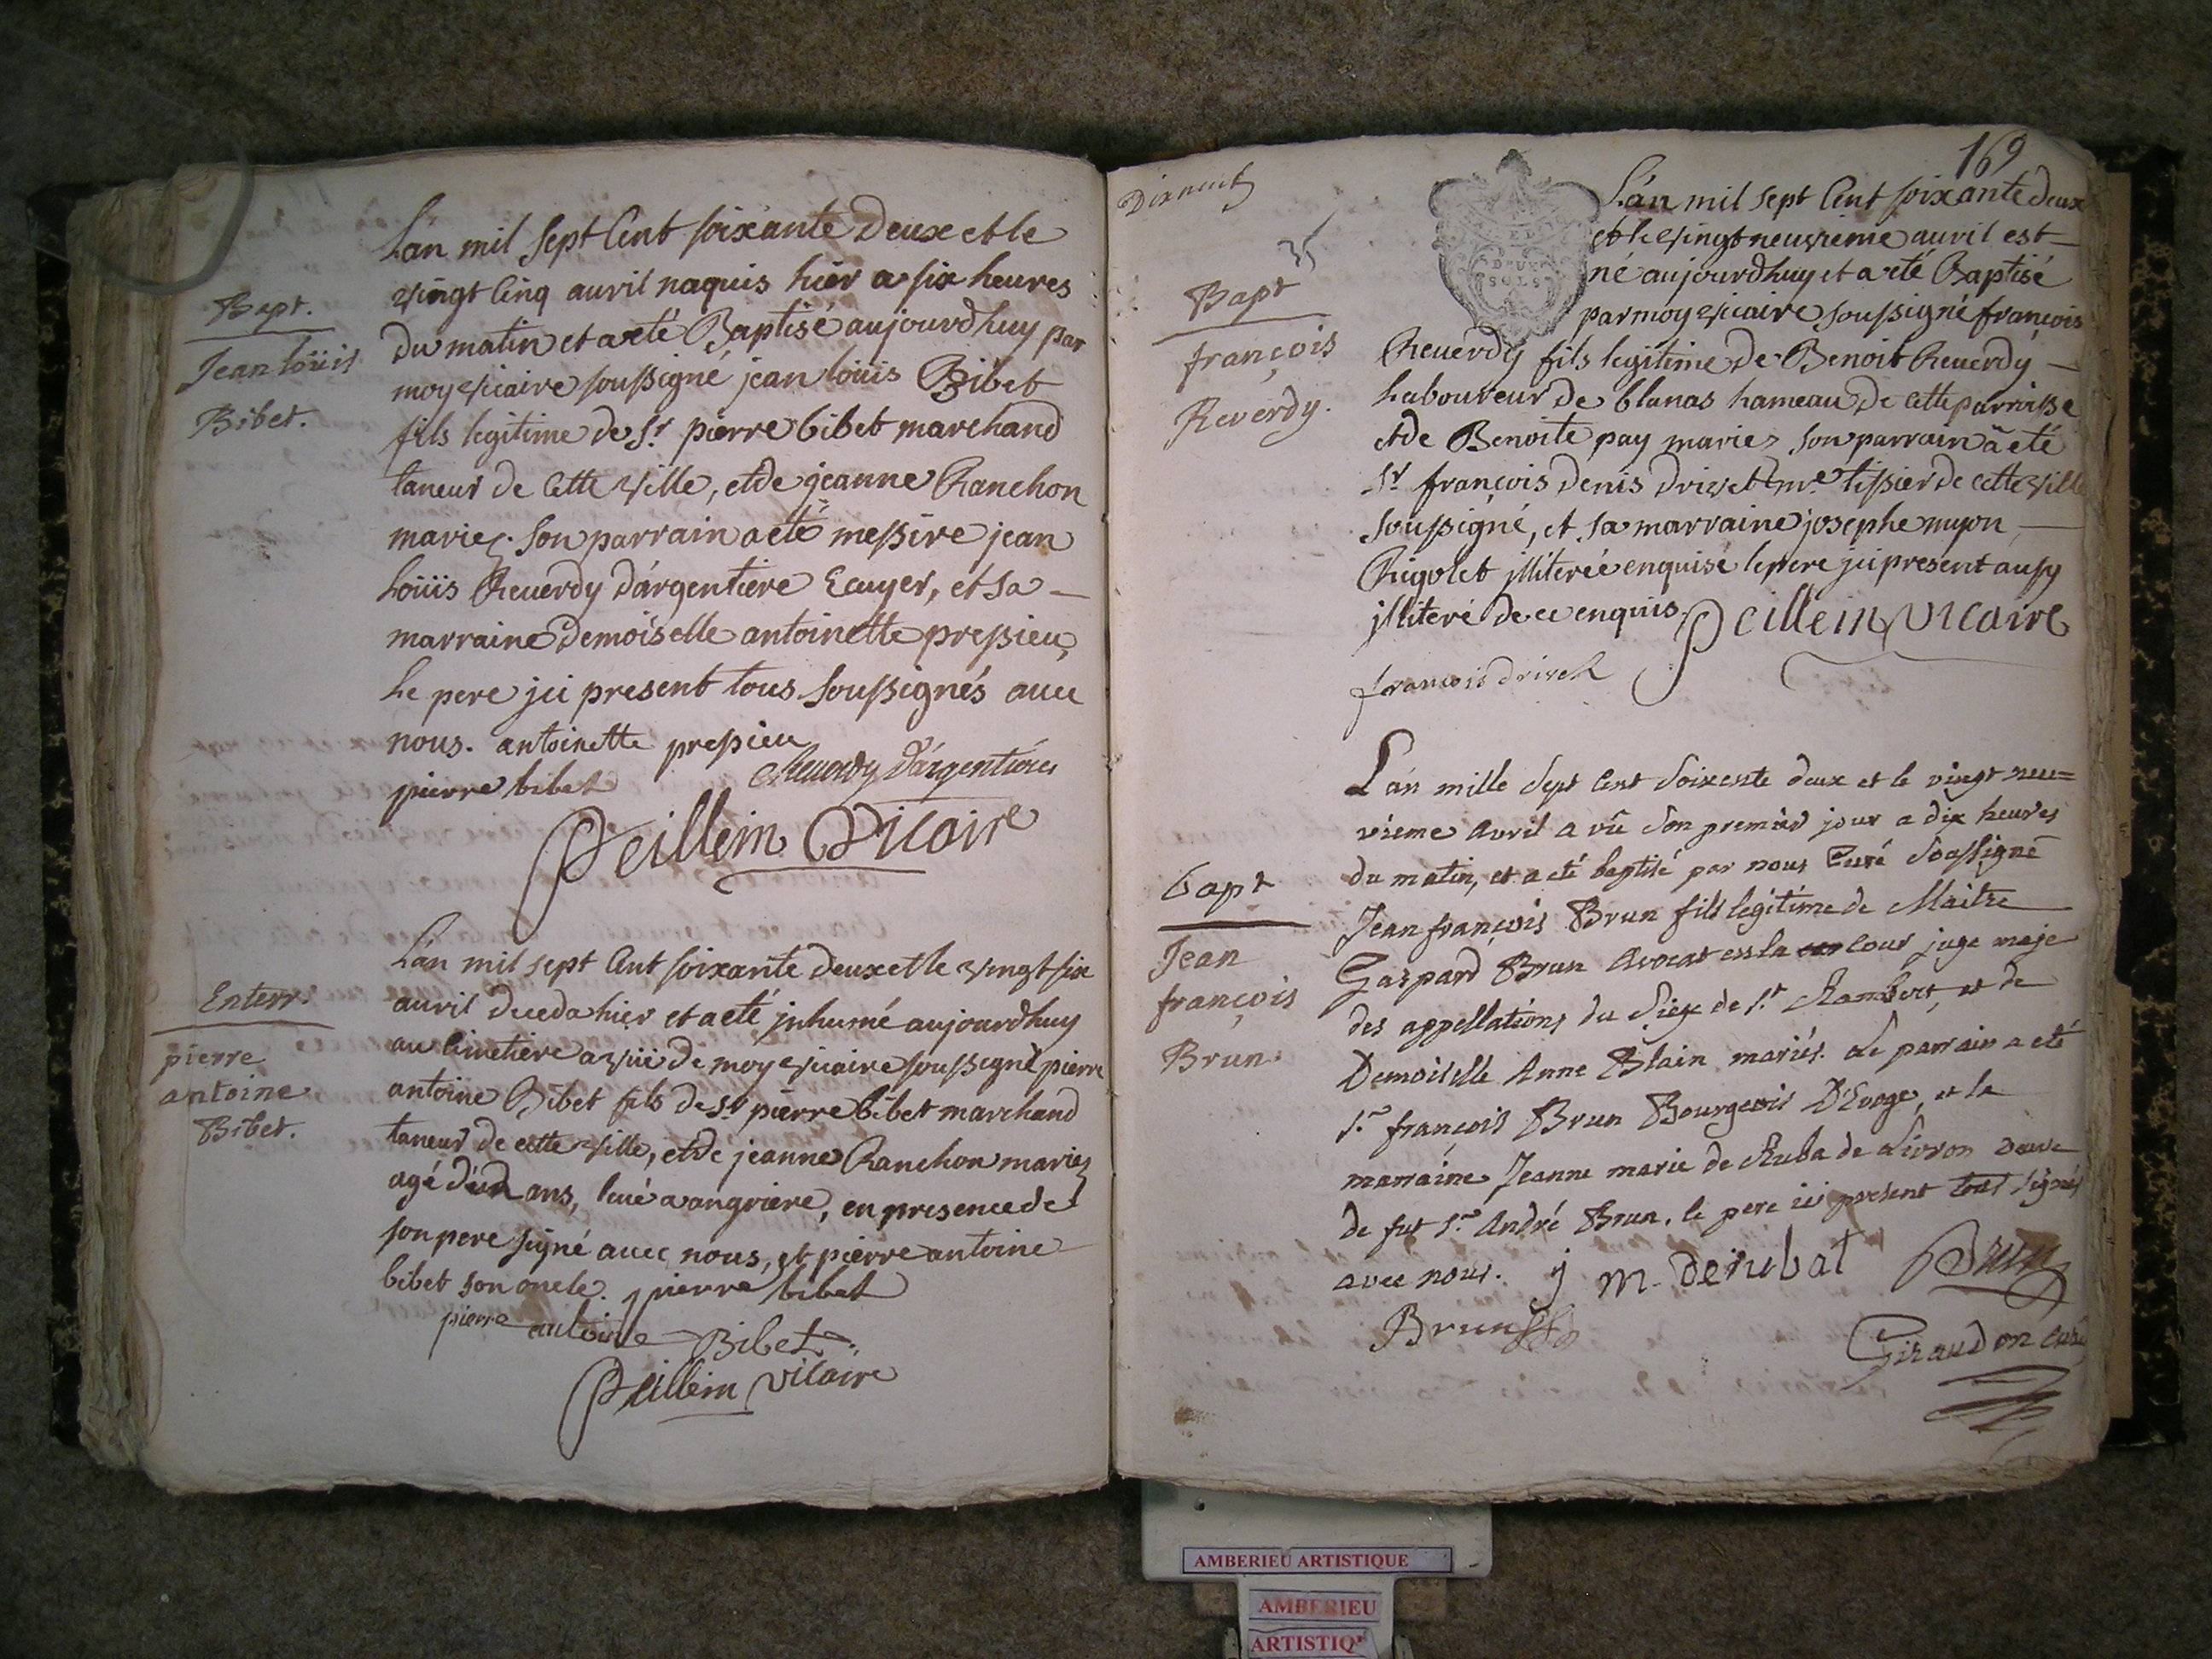 Bapt.
Jean loüis
Bibet.
L'an mil sept Cent soixante Deux et le
vingt Cinq auril naquis hier a six heures
du matin et a eté Baptisé aujourdhuy par
moy vicaire soussigné jean loüis Bibet
fils legitime de Sr pierre bibet marchand
taneur de Cette ville, et de jeanne Ranchon
mariez. Son parrain a eté messire jean
Loüis Reuerdy d'argentiere Ecuyer, et sa
marraine Demoiselle antoinette pressieu,
Le pere jci present tous soussignés auec
nous. antoinette pressieu
pierre bibet Reuerdy D'argentiere
Peillein Vicaire
Enterr.
pierre
antoine
Bibet.
L'an mil sept Cent soixante deux et le vingt six
auril deceda hier et a eté jnhumé aujourdhuy
au Cimetiere a vüe de moy vicaire soussigné pierre
antoine Bibet fils de Sr pierre bibet marchand
taneur de cette ville, et de jeanne Ranchon mariez
agé d'un ans, en presence de
son pere signé auec nous, et pierre antoine
bibet son oncle. pierre bibet
pierre antoine Bibet
Peillein vicaire
Dixneuf
169
DEUX
SOLS
Bapt
françois
Reverdy.
L'an mil sept Cent soixante deux
et le vingt neuvieme auril est
né aujourdhuy et a eté Baptisé
par moy vicaire soussigné françois
Reuerdy fils legitime de Benoit Reuerdy
Laboureur de blanas hameau de cette parroisse
et de Benoite pay mariez son parrain a eté
Sr françois Denis Drivet me tissier de cette ville
soussigné, et sa marraine josephe
Rigolet jlliterée enquise le pere jci present aussy
jlliteré de ce enquis. Peillein vicaire
francois drivet
bapt
Jean
françois
Brun.
L'an mille Sept Cent Soixente deux et le vingt neu=
vieme Avril a vû son premier jour a dix heures
du matin, et a eté baptisé par nous Curé Soussigné
Jean françois Brun fils legitime de Maitre
Gaspard Brun Avocat en la cour juge maje
des appellations du Siege de St Rambert, et de
Demoiselle Anne Blain mariés. Le parrain a eté
Sr françois Brun Bourgeois D'Evoge, et la
marraine Jeanne marie de Ruba de Livron veuve
de fut Sr André Brun. le pere ici present tous signés
avec nous. j m derubat Brun
Brun
Giraud on curé
AMBERIEU ARTISTIQUE
AMBERIEU
ARTISTIQ